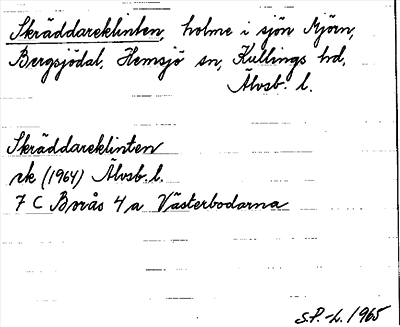 Skräddareklinten, holme i sjön Mjörn,
Bergsjödal, Hemsjö sn, Kullings hd,
Älvsb. l.
Skräddareklinten
rk (1964) Älvsb. l.
7 C Borås 4 a Västerbodarna
S.P.-L. 1965